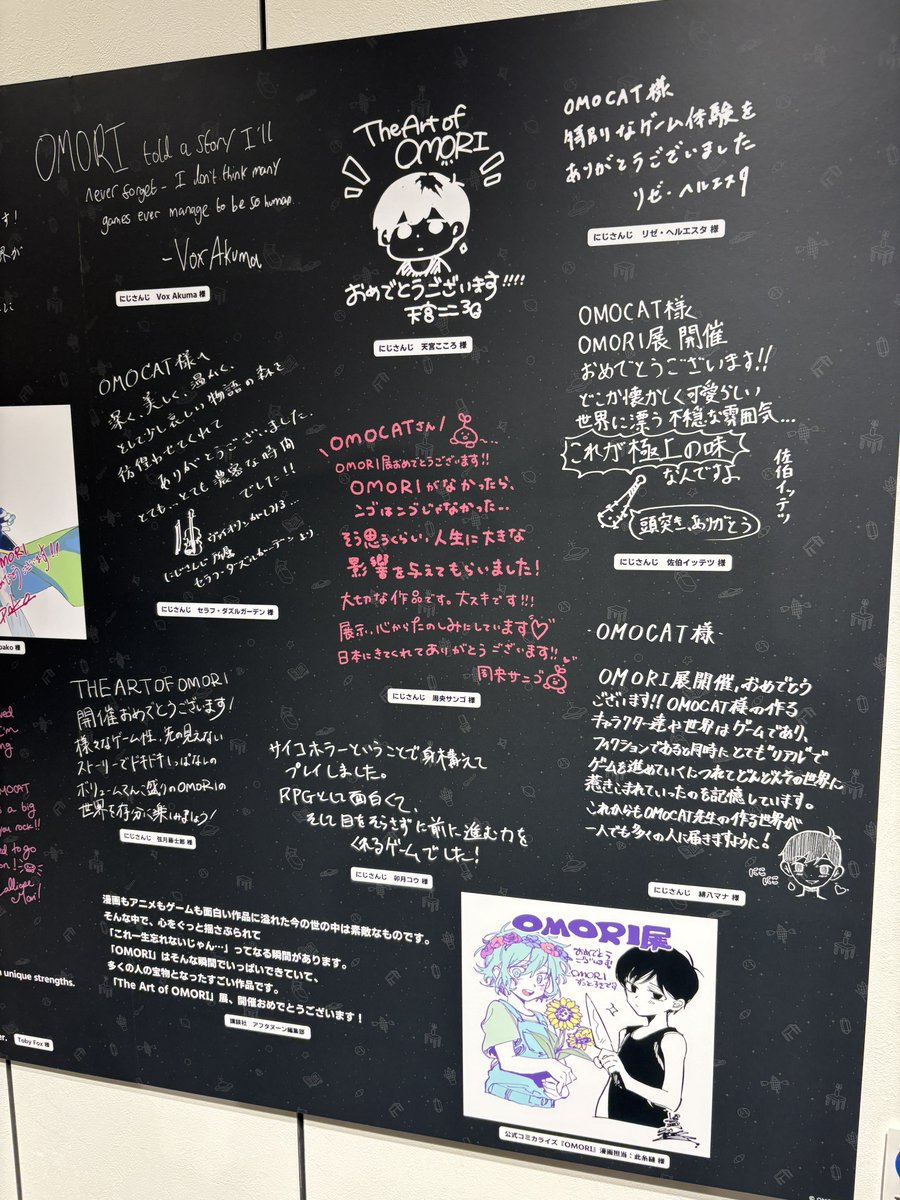 OMORI told a story I'll
never forget - I don't think many
games ever manage to be so human.
-Vox Akuma
にじさんじ Vox Akuma 様
The Art of
OMORI
おめでとうございます!!!!
天宮こころ
にじさんじ 天宮こころ 様
OMOCAT様
特別なゲーム体験を
ありがとうございました
リゼ・ヘルエスタ
にじさんじ リゼ・ヘルエスタ 様
OMOCAT様へ
深く、美しく、温かく、
そして少し哀しい物語の森を
彷徨わせてくれて
ありがとうございました。
とても…とても濃密な時間
でした!!
にじさんじ所属
セラフ・ダズルガーデンより
にじさんじ セラフ・ダズルガーデン 様
\OMOCATさん/
OMORI展おめでとうございます!!
OMORIがなかったら、
ンゴはンゴじゃなかった…
そう思うくらい、人生に大きな
影響を与えてもらいました!
大切な作品です。大スキです!!!
展示、心からたのしみにしています♡
日本にきてくれてありがとうございます!!
周央サンゴ
にじさんじ 周央サンゴ 様
OMOCAT様
OMORI展 開催
おめでとうございます!!
どこか懐かしく可愛らしい
世界に漂う不穏な雰囲気…
これが極上の味
なんですよ
佐伯イッテツ
頭突きありがとう
にじさんじ 佐伯イッテツ 様
THE ART OF OMORI
開催おめでとうございます!
様々なゲーム性、先の見えない
ストーリーでドキドキしっぱなしの
ボリュームてんこ盛りのOMORIの
世界を存分に楽しみましょう!
にじさんじ 弦月藤士郎 様
サイコホラーということで身構えて
プレイしました。
RPGとして面白くて、
そして目をそらさずに前に進む力を
くれるゲームでした!
にじさんじ 卯月コウ 様
-OMOCAT様-
OMORI展開催、おめでとう
ございます!! OMOCAT様の作る
キャラクター達や世界はゲームであり、
フィクションであると同時にとても"リアル"で
ゲームを進めていくにつれてどんどんその世界に
惹きこまれていったのを記憶しています。
これからもOMOCAT先生の作る世界が
一人でも多くの人に届きますように!
にこにこ
にじさんじ 緋八マナ 様
漫画もアニメもゲームも面白い作品に溢れた今の世の中は素敵なものです。
そんな中で、心をぐっと揺さぶられて
「これ一生忘れないじゃん…」ってなる瞬間があります。
「OMORI」はそんな瞬間でいっぱいできていて、
多くの人の宝物となったすごい作品です。
「The Art of OMORI」展、開催おめでとうございます!
講談社 アフタヌーン編集部
OMORI展
おめでとう
ございます
OMORI
公式コミカライズ『OMORI』漫画担当:此糸縫 様
unique strengths.
Toby Fox 様